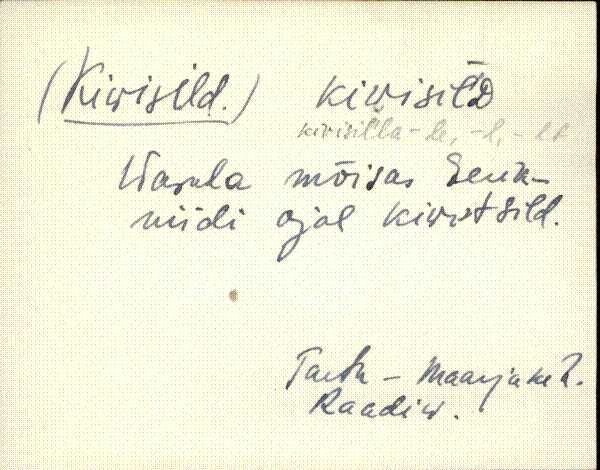 (Kiwisild.) kiwisil'D
kiwisil'la - le, - l, - lt
Wasula mõisas Seenik-
niidi ojal kiwist sild.
Tartu - Maarja kih.
Raadi w.